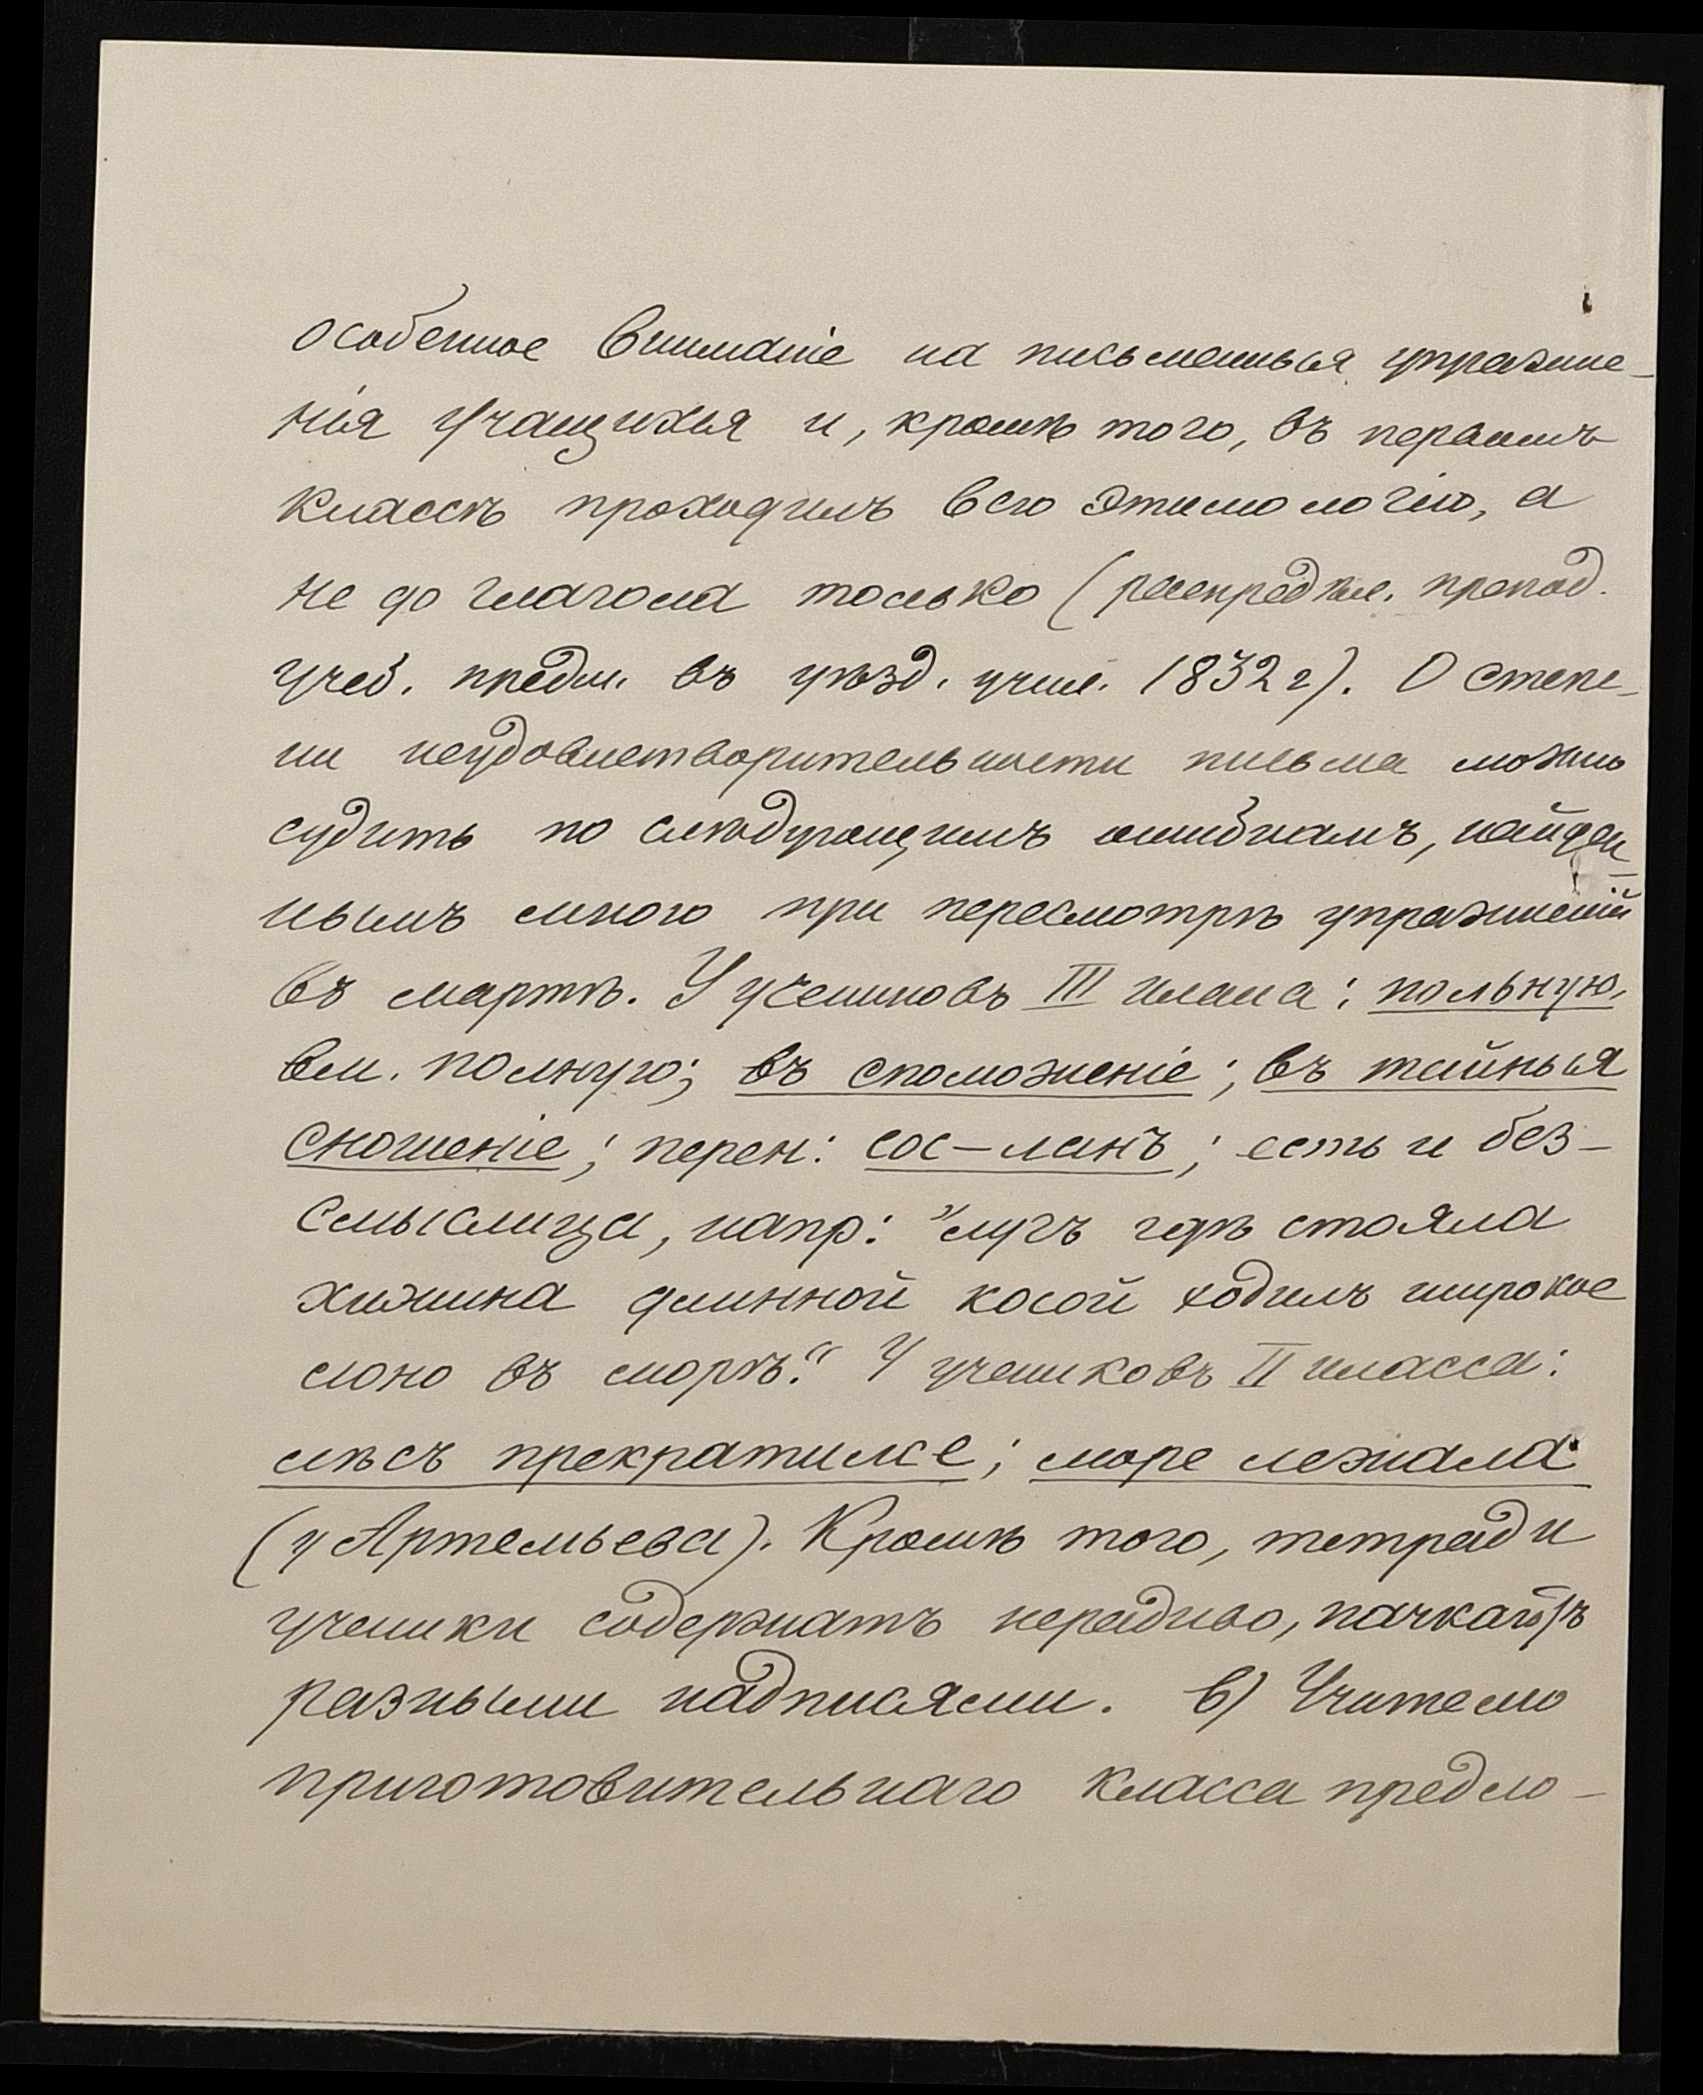 особенное вниманіе на письменныя упражне-
нія учащихся и, кромѣ того, въ первомъ
классѣ проходилъ всю этимологію, а
не до глагола только (распредѣл. препод.
учеб. предм. въ уѣзд. учил. 1832 г). О степе-
ни неудовлетворительности письма можно
судить по слѣдующимъ ошибкамъ, найден-
нымъ мною при пересмотрѣ упражненій
въ мартѣ. У учениковъ III класса: польную,
вм. полную; въ споможеніе; въ тайныя
сношеніе; перен: сос-ланъ; есть и без-
смыслица, напр: "лугъ гдѣ стояла
хижина длинной косой ходилъ широкое
лоно въ морѣ." У учениковъ II класса:
лѣсъ прекратилсе; море лежала
(у Артемьева). Кромѣ того, тетради
ученики содержатъ нерадиво, пачкаютъ
разными надписями. в) Учителю
приготовительнаго класса предло-